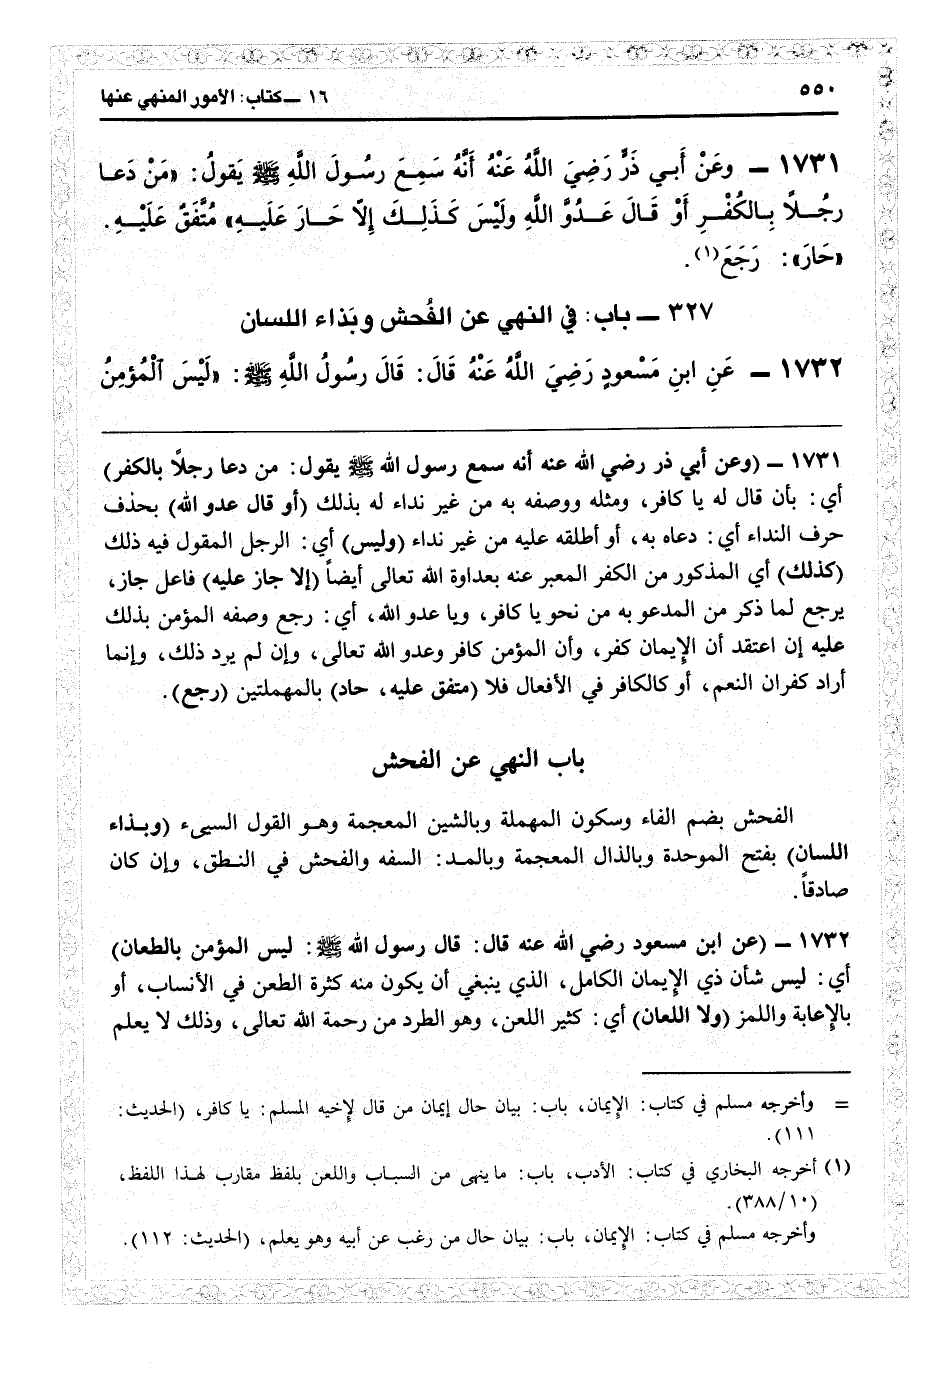 ٥٥٠
١٦ ــ كتاب: الأمور المنهي عنها
١٧٣١ ــ وعَنْ أَبي ذَرٍّ رَضِيَ اللَّهُ عَنْهُ أَنَّهُ سَمِعَ رسُولَ اللَّهِ ﷺ يَقولُ: «مَنْ دَعا
رجُلاً بِالكُفْرِ أَوْ قَالَ عَدُوَّ اللَّهِ ولَيْسَ كَذَلِكَ إِلاَّ حَارَ عَلَيهِ» مُتَّفَقٌ عَلَيْهِ.
«حَارَ»: رَجَعَ(١).
٣٢٧ ــ باب: في النهي عن الفُحش وبَذاء اللسان
١٧٣٢ ــ عَنِ ابنِ مَسْعودٍ رَضِيَ اللَّهُ عَنْهُ قَالَ: قَالَ رسُولُ اللَّهِ ﷺ: «لَيْسَ ٱلْمُؤمِنُ
١٧٣١ ــ (وعن أبي ذر رضي الله عنه أنه سمع رسول الله ﷺ يقول: من دعا رجلاً بالكفر)
أي: بأن قال له يا كافر، ومثله ووصفه به من غير نداء له بذلك (أو قال عدو الله) بحذف
حرف النداء أي: دعاه به، أو أطلقه عليه من غير نداء (وليس) أي: الرجل المقول فيه ذلك
(كذلك) أي المذكور من الكفر المعبر عنه بعداوة الله تعالى أيضاً (إلا جاز عليه) فاعل جاز،
يرجع لما ذكر من المدعو به من نحو يا كافر، ويا عدو الله، أي: رجع وصفه المؤمن بذلك
عليه إن اعتقد أن الإِيمان كفر، وأن المؤمن كافر وعدو الله تعالى، وإن لم يرد ذلك، وإنما
أراد كفران النعم، أو كالكافر في الأفعال فلا (متفق عليه، حاد) بالمهملتين (رجع).
باب النهي عن الفحش
الفحش بضم الفاء وسكون المهملة وبالشين المعجمة وهو القول السيىء (وبذاء
اللسان) بفتح الموحدة وبالذال المعجمة وبالمد: السفه والفحش في النطق، وإن كان
صادقاً.
١٧٣٢ ــ (عن ابن مسعود رضي الله عنه قال: قال رسول الله ﷺ: ليس المؤمن بالطعان)
أي: ليس شأن ذي الإِيمان الكامل، الذي ينبغي أن يكون منه كثرة الطعن في الأنساب، أو
بالإِعابة واللمز (ولا اللعان) أي: كثير اللعن، وهو الطرد من رحمة الله تعالى، وذلك لا يعلم
= وأخرجه مسلم في كتاب: الإِيمان، باب: بيان حال إيمان من قال لأخيه المسلم: يا كافر، (الحديث:
١١١).
(١) أخرجه البخاري في كتاب: الأدب، باب: ما ينهى من السباب واللعن بلفظ مقارب لهذا اللفظ،
(٣٨٨/١٠).
وأخرجه مسلم في كتاب: الإِيمان، باب: بيان حال من رغب عن أبيه وهو يعلم، (الحديث: ١١٢).